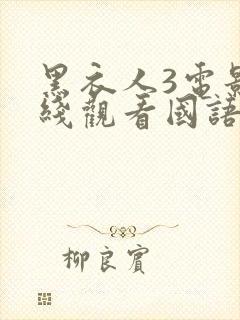 黑衣人3電影
綫觀看國語
柳良賓